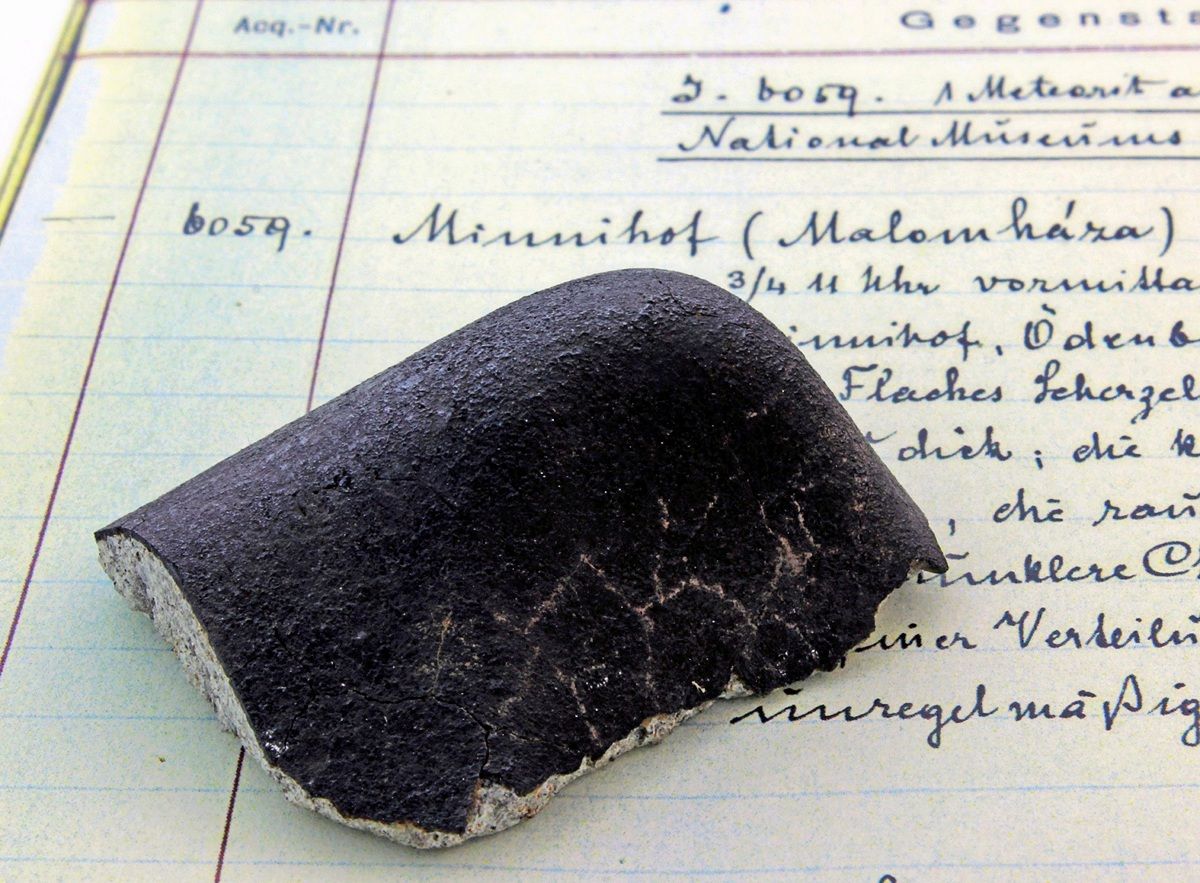 Acq.-Nr. Gegenst
J. 6059. 1 Meteorit a
National Museums
6059. Minnihof (Malomháza)
3/4 11 Uhr vormitta
innihof, Ödenb
Flaches Scherzel
dick; die k
, die rau
unklere
einer Verteilu
unregelmäßig